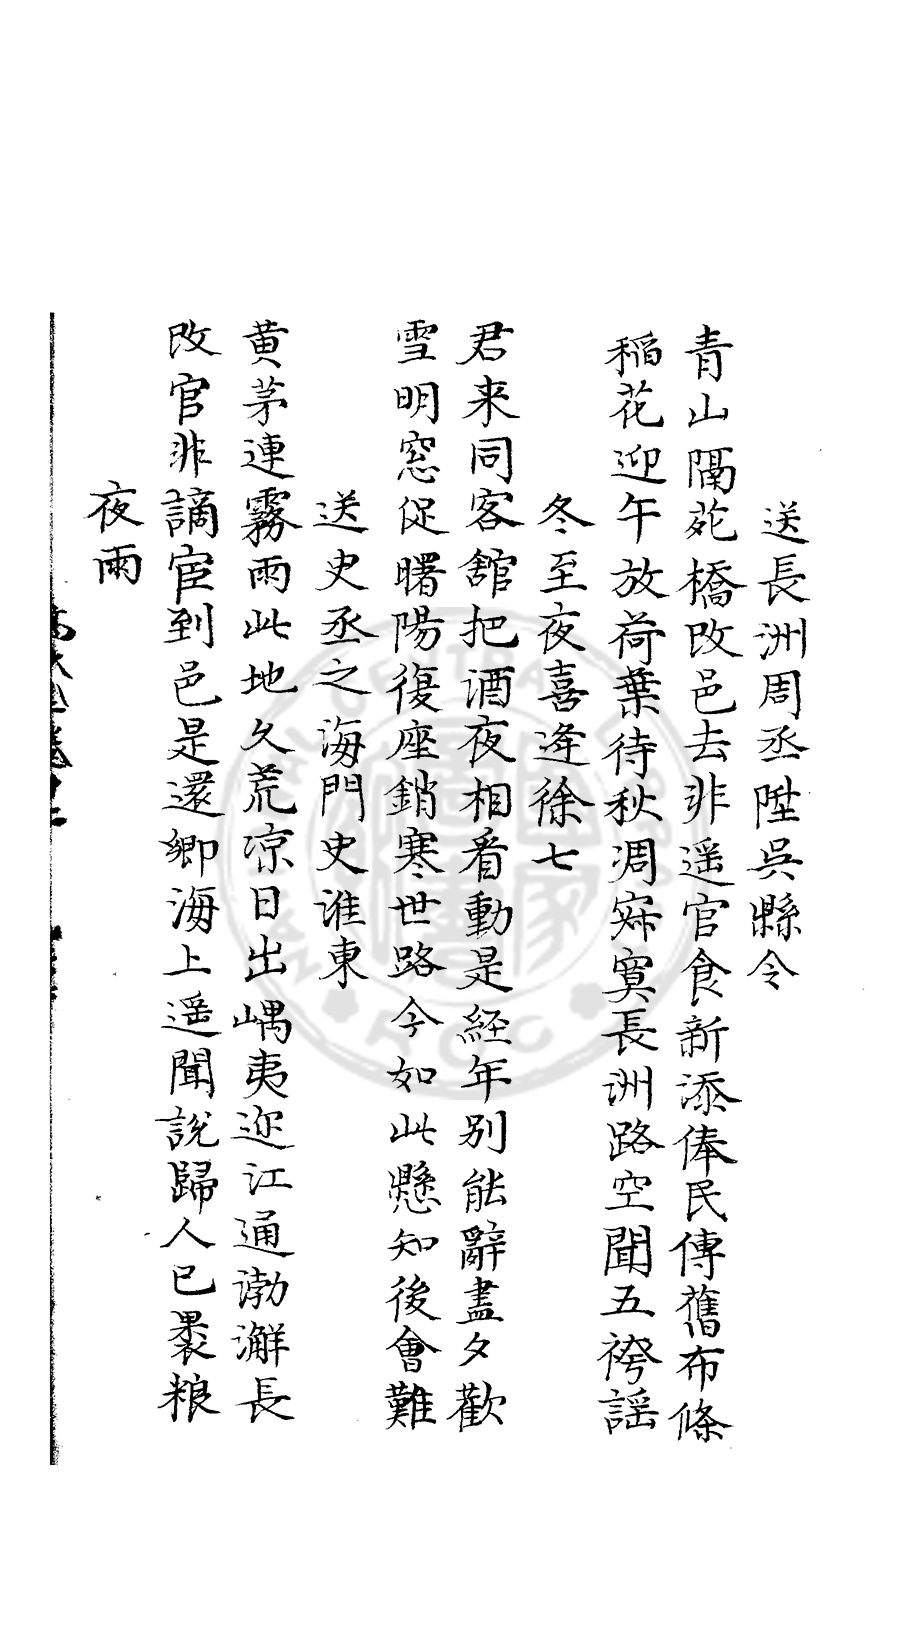 送長洲周丞陞吳縣令
青山隔苑橋改邑去非遥官食新添俸民傳舊布條
稻花迎午放荷葉待秋凋寂寞長洲路空聞五袴謡
冬至夜喜逢徐七
君来同客舘把酒夜相看動是経年别能辭盡夕歡
雪明窓促曙陽復座銷寒世路今如此懸知後會難
送史丞之海門史淮東
黄茅連霧雨此地久荒凉日出嵎夷迩江通渤澥長
改官非謫宦到邑是還鄉海上遥聞說歸人已裹粮
夜雨